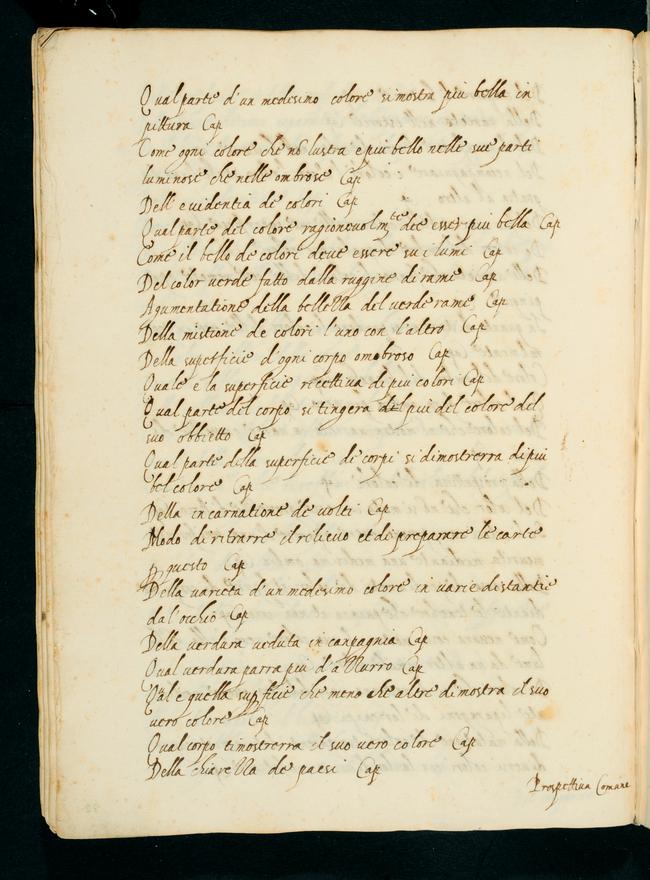 Qual parte d'un medesimo colore si mostra piu bella in
pittura Cap
Come ogni colore che nō lustra e piu bello nelle sue parti
luminose che nelle ombrose Cap
Dell'evidentia de colori Cap
Qual parte del colore ragionevolmte dee esser piu bella Cap
Come il bello de colori deve essere su i lumi Cap
Del color verde fatto dalla ruggine di rame Cap
Aumentatione della bellezza del verde rame Cap
Della mistione de colori l'uno con l'altro Cap
Della superficie d'ogni corpo ombroso Cap
Quale e la superficie recettiva di piu colori Cap
Qual parte del corpo si tingera del piu del colore del
suo obbietto Cap
Qual parte della superficie de corpi si dimostrerra di piu
bel colore Cap
Della incarnatione de volti Cap
Modo di ritrarre il rilievo et di preparare le carte
p questo Cap
Della varieta d'un medesimo colore in varie distantie
dal'occhio Cap
Della verdura veduta in canpagnia Cap
Qual verdura parra piu d'azzurro Cap
Qal e quella supficie che meno che altre dimostra il suo
vero colore Cap
Qual corpo timostrerra il suo vero colore Cap
Della chiarezza de paesi Cap
Prospettiva Comune